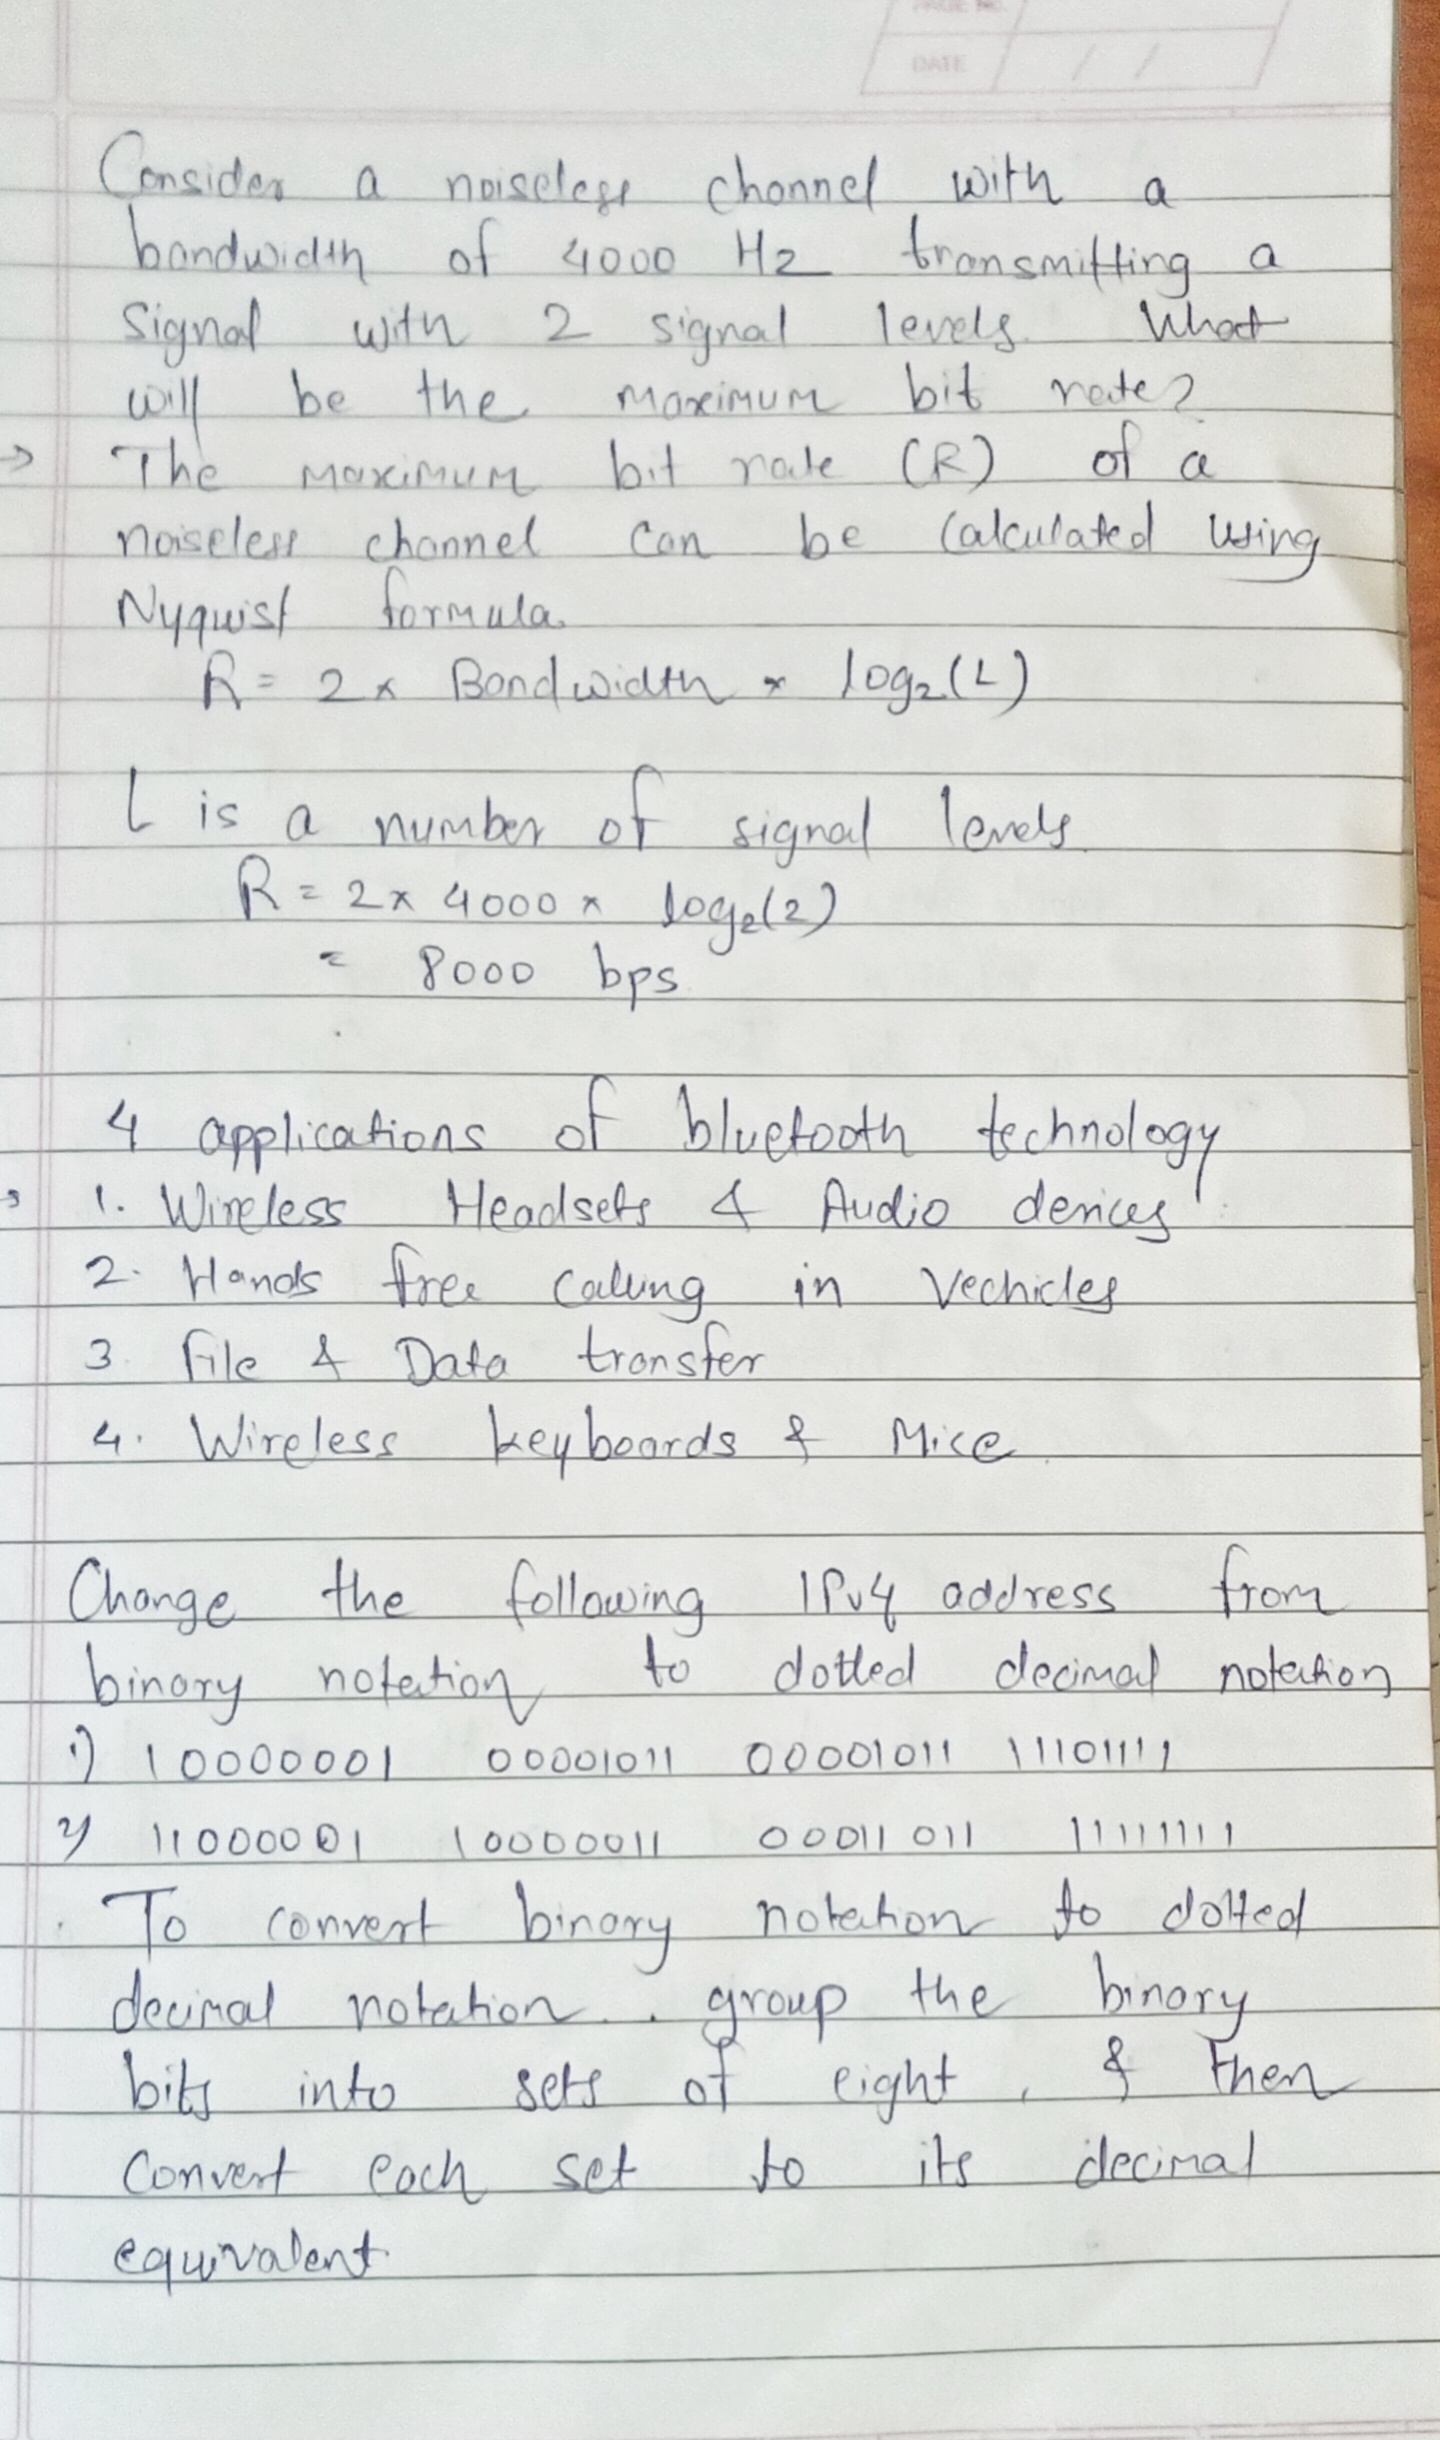 PAGE NO.
DATE / /
Consider a noiseless channel with a
bandwidth of 4000 Hz transmitting a
Signal with 2 signal levels. What
will be the maximum bit rate?
→ The maximum bit rate (R) of a
noiseless channel can be calculated using
Nyquist formula.
R = 2 x Bandwidth x log₂(L)
L is a number of signal levels.
R = 2 x 4000 x log₂(2)
= 8000 bps.
4 applications of bluetooth technology
→ 1. Wireless Headsets & Audio devices.
2. Hands free calling in Vechicles
3. File & Data transfer
4. Wireless keyboards & Mice.
Change the following IPv4 address from
binary notation to dotted decimal notation
1) 10000001 00001011 00001011 11101111
2) 11000001 10000011 00011011 11111111
To convert binary notation to dotted
decimal notation. group the binary
bits into sets of eight, & then
Convert each set to its decimal
equivalent.